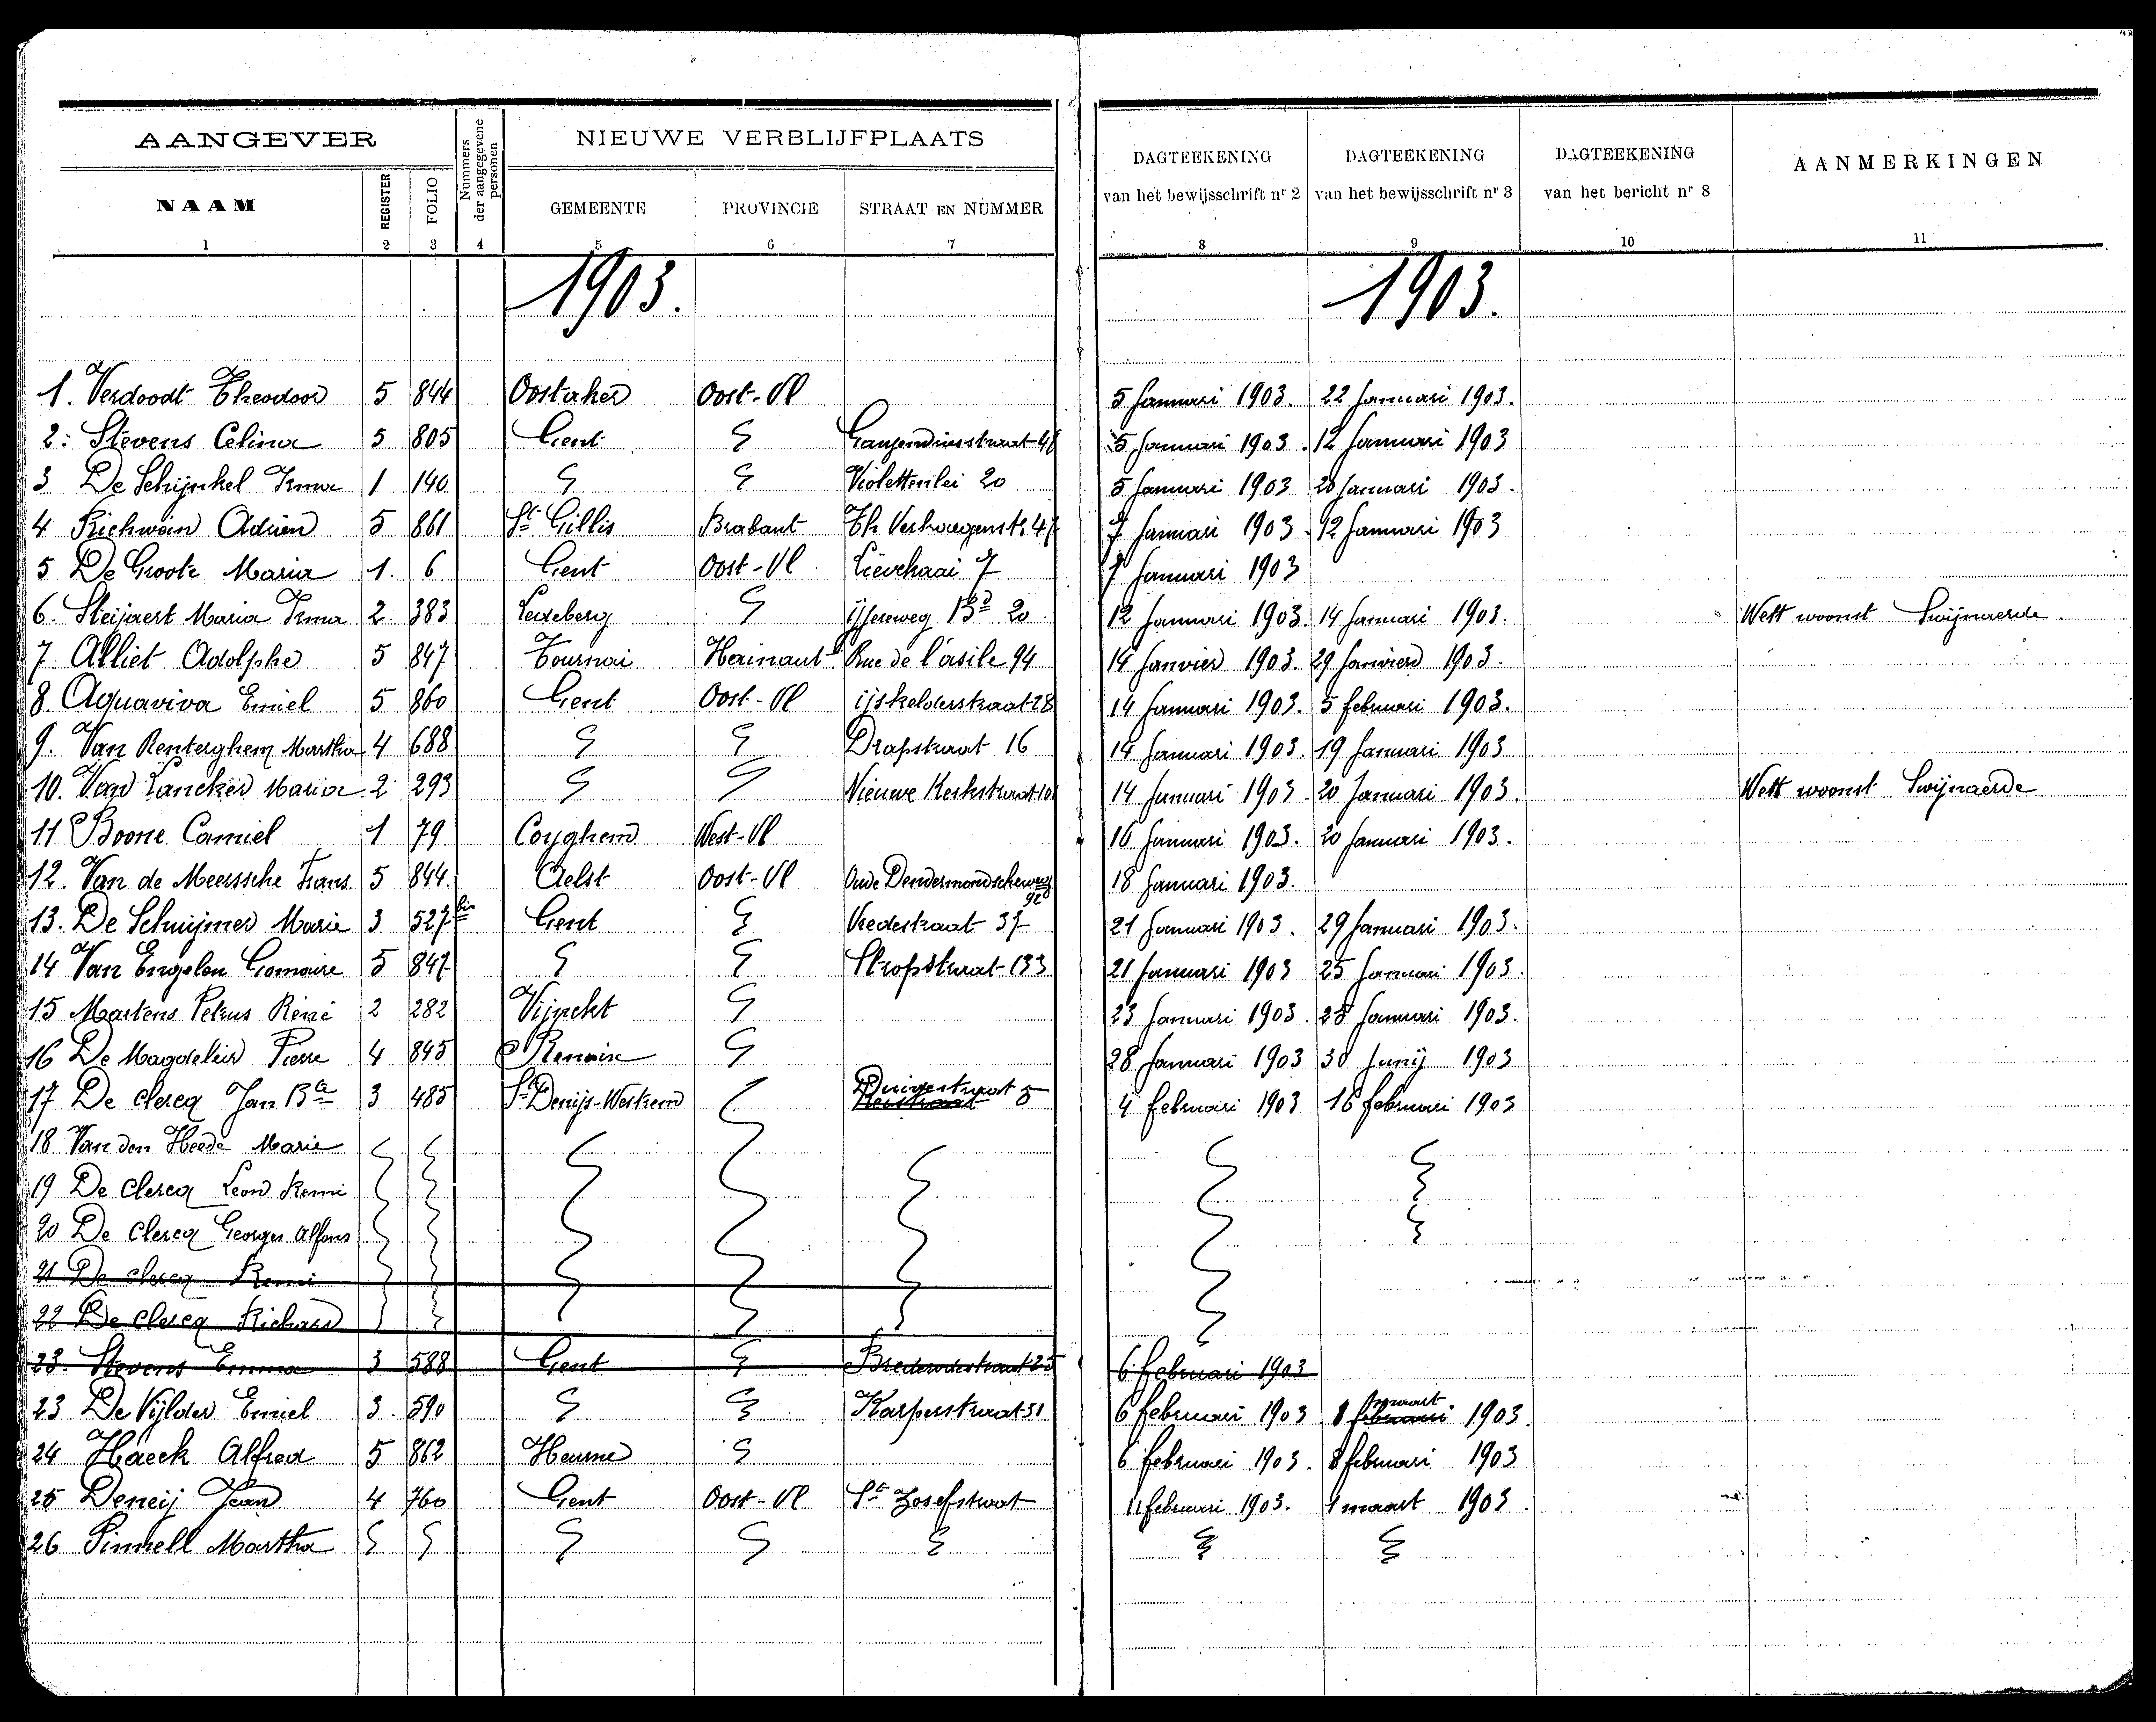 AANGEVER
Nummers der aangegevene personen
NIEUWE VERBLIJFPLAATS
DAGTEEKENING van het bewijsschrift nr 2
DAGTEEKENING van het bewijsschrift nr 3
DAGTEEKENING van het bericht nr 8
AANMERKINGEN
NAAM REGISTER FOLIO GEMEENTE PROVINCIE STRAAT EN NUMMER
1 2 3 4 5 6 7 8 9 10 11
1903. 1903.
1. Verdoodt Theodoor 5 844 Oostaker Oost-Vl 5 Januari 1903. 22 Januari 1903.
2: Stevens Celina 5 805 Gent 5 Januari 1903. 12 Januari 1903
3 De Schijnkel Irma 1 140 Violettenlei 20 5 Januari 1903 20 Januari 1903.
4 Richwein Adrien 5 861 St Gillis Brabant Th Verhaegenstr 47 7 Januari 1903. 12 Januari 1903
5 De Groote Maria 1. 6 Gent Oost-Vl Lievekaai 7 7 Januari 1903
6. Steijaert Maria Irma 2 383 Ledeberg Bd 20 12 Januari 1903. 14 Januari 1903. Wett woonst Swijnaerde.
7 Alliet Adolphe 5 847 Tournai Hainaut Rue de l'asile 94 14 Janvier 1903. 29 Janvier 1903.
8 Aquaviva Emiel 5 860 Gent Oost-Vl ijskelderstraat 28 14 Januari 1903. 5 februari 1903.
9. Van Renterghem Martha 4 688 Drapstraat 16 14 Januari 1903. 19 Januari 1903
10. Van Lancker Maria 2 293 Nieuwe Kerkstraat 10 14 Januari 1903. 20 Januari 1903. Wett woonst Swijnaerde
11 Boone Camiel 1 79 Coyghem West-Vl 16 Januari 1903. 20 Januari 1903.
12. Van de Meerssche Frans 5 844 Aelst Oost-Vl Oude Dendermondscheweg 92 18 Januari 1903.
13. De Schuijmer Marie 3 527 bis Gent Vredestraat 37 21 Januari 1903. 29 Januari 1903.
14 Van Engelen Gomaire 5 847 Stropstraat 133 21 Januari 1903 25 Januari 1903.
15 Martens Petrus Réné 2 282 Vijnckt 23 Januari 1903. 28 Januari 1903.
16 De Magdeleir Pierre 4 845 Renaix 28 Januari 1903 30 Junij 1903
17 De clercq Jan Bta 3 485 St Denijs-Westrem 5 4 februari 1903 16 februari 1903
18 Van den Heede Marie
19 De clercq Leon Remi
20 De clercq Georges Alfons
21 De clercq Remi
22 De clercq Richard
23. Stevens Emma 3 588 Gent Brederodestraat 25 6 februari 1903
23 De Vijlder Emiel 3. 590 Karperstraat 51 6 februari 1903 8 februari maart 1903.
24 Haeck Alfred 5 862 Heurne 6 februari 1903. 8 februari 1903
25 Deneij Jean 4 760 Gent Oost-Vl St Josefstraat 11 februari 1903. 1 maart 1903.
26 Pinnell Martha